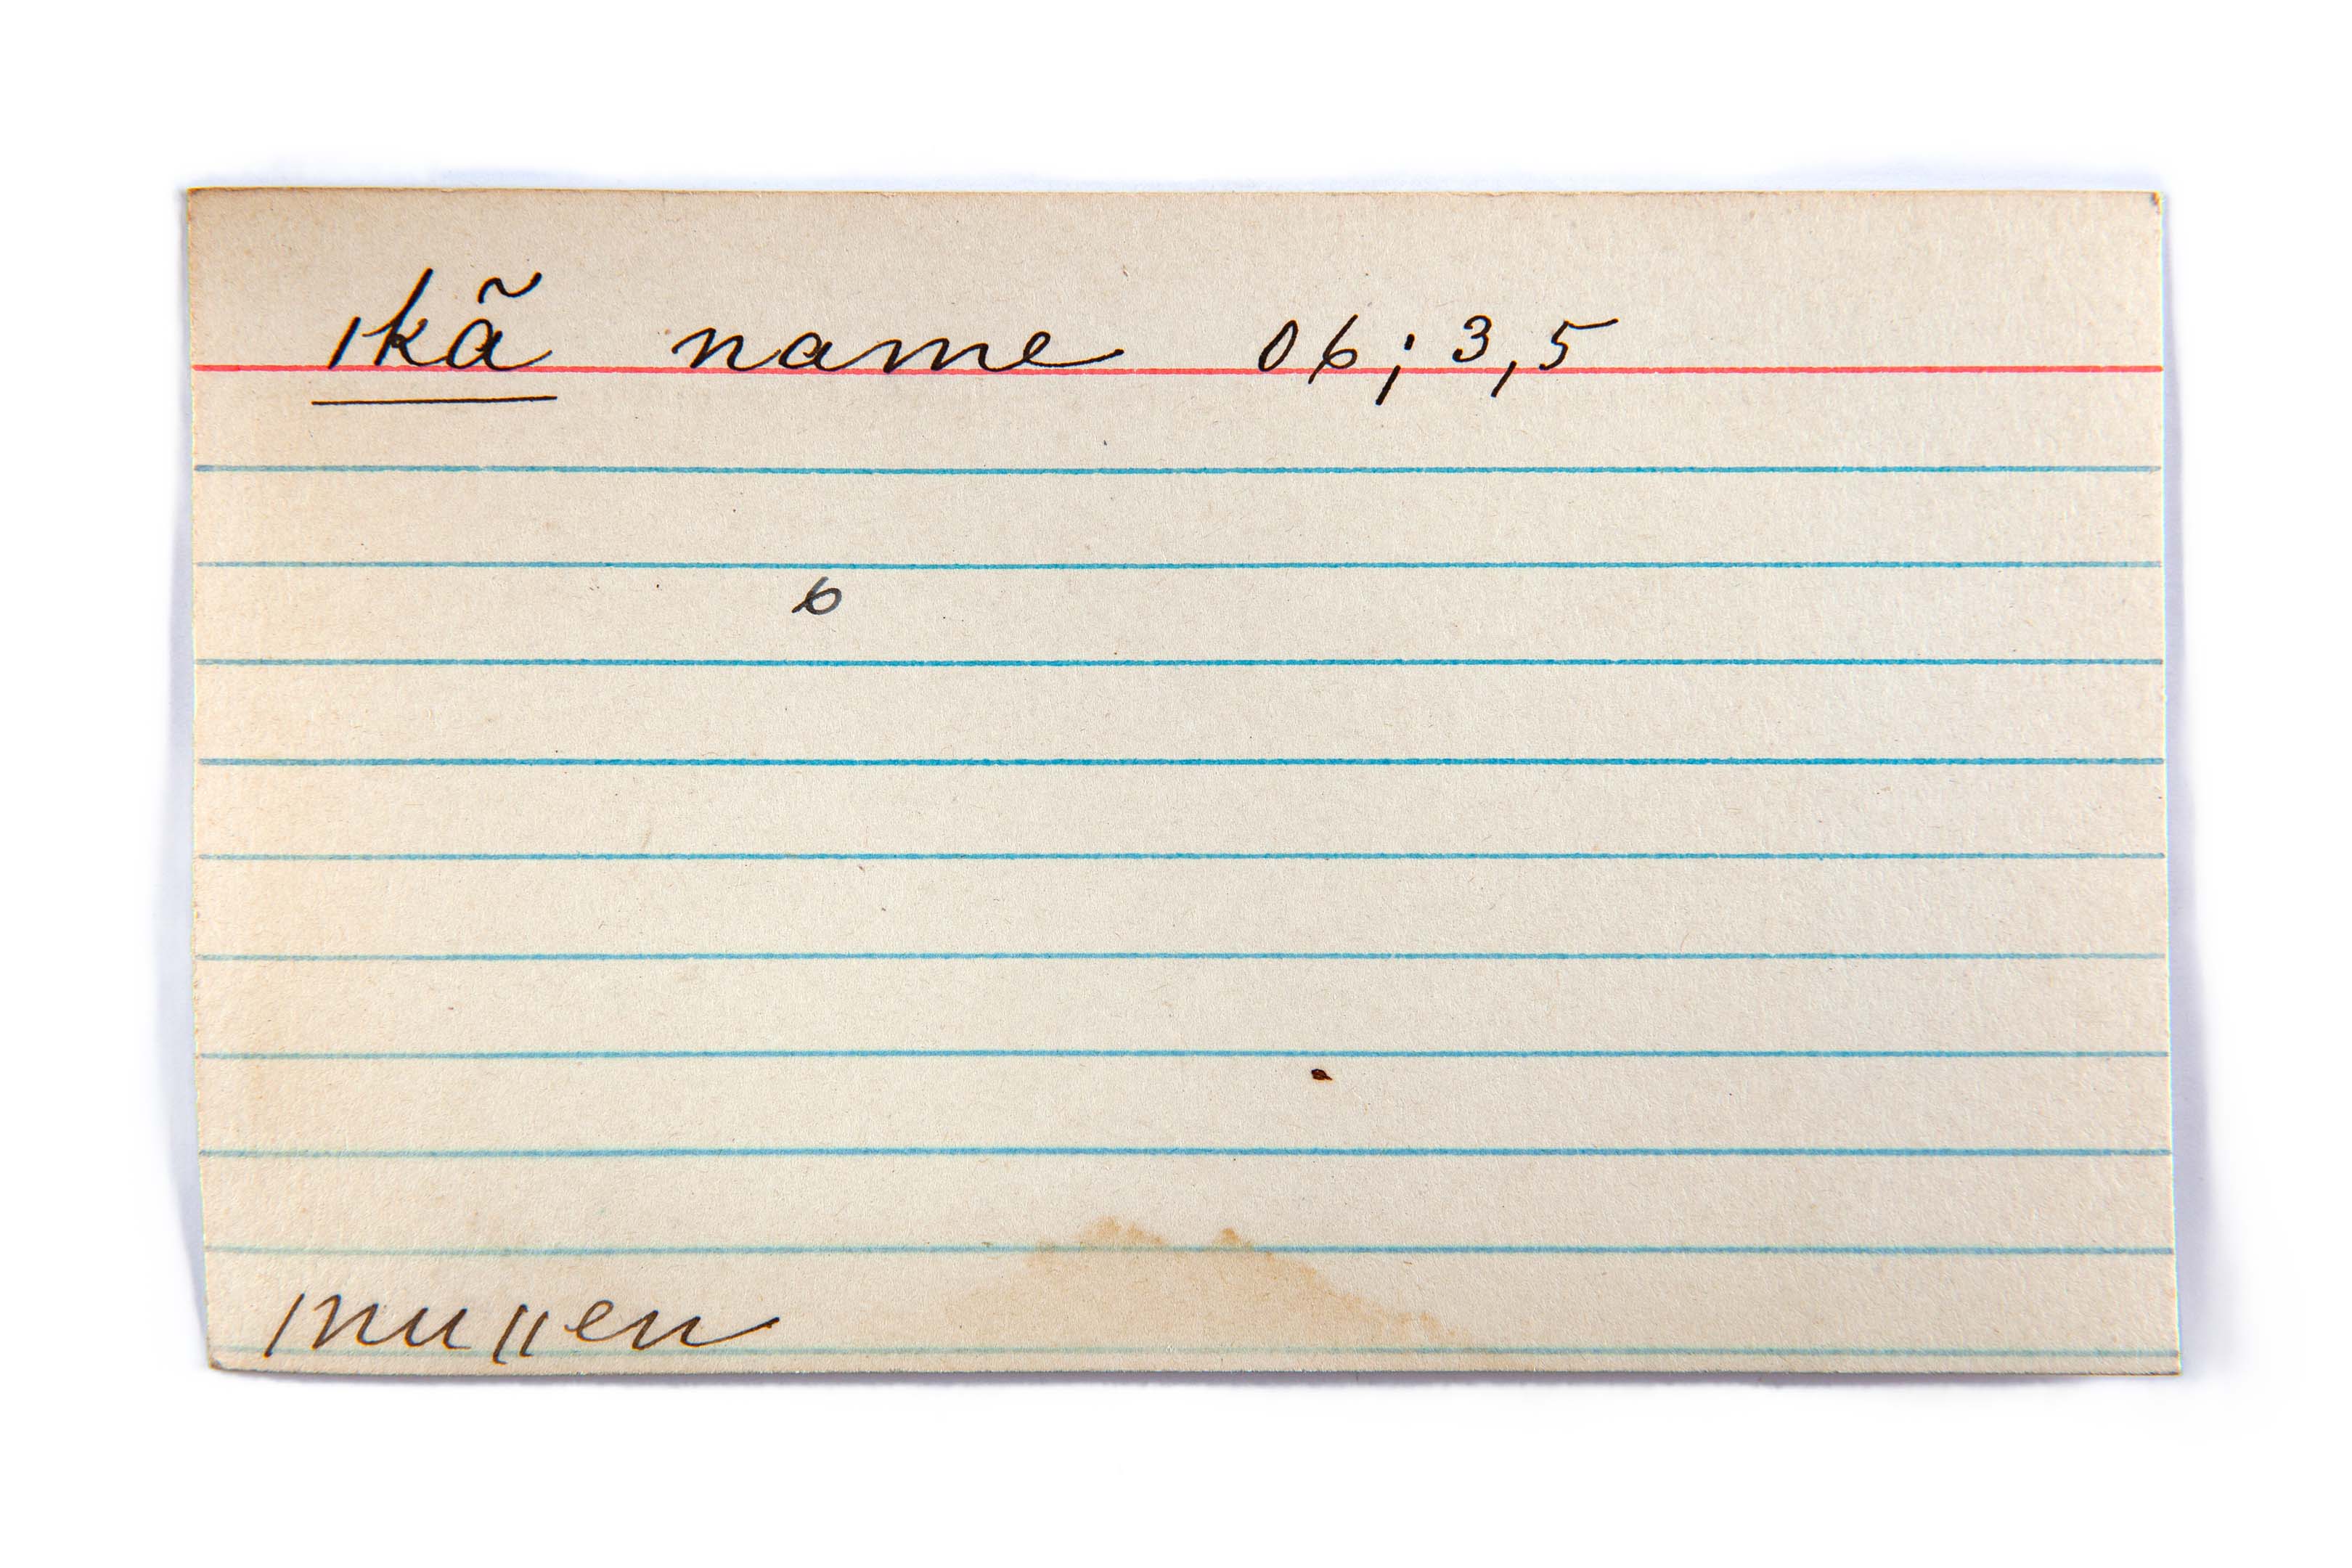 ıkã name 06; 3,5
6